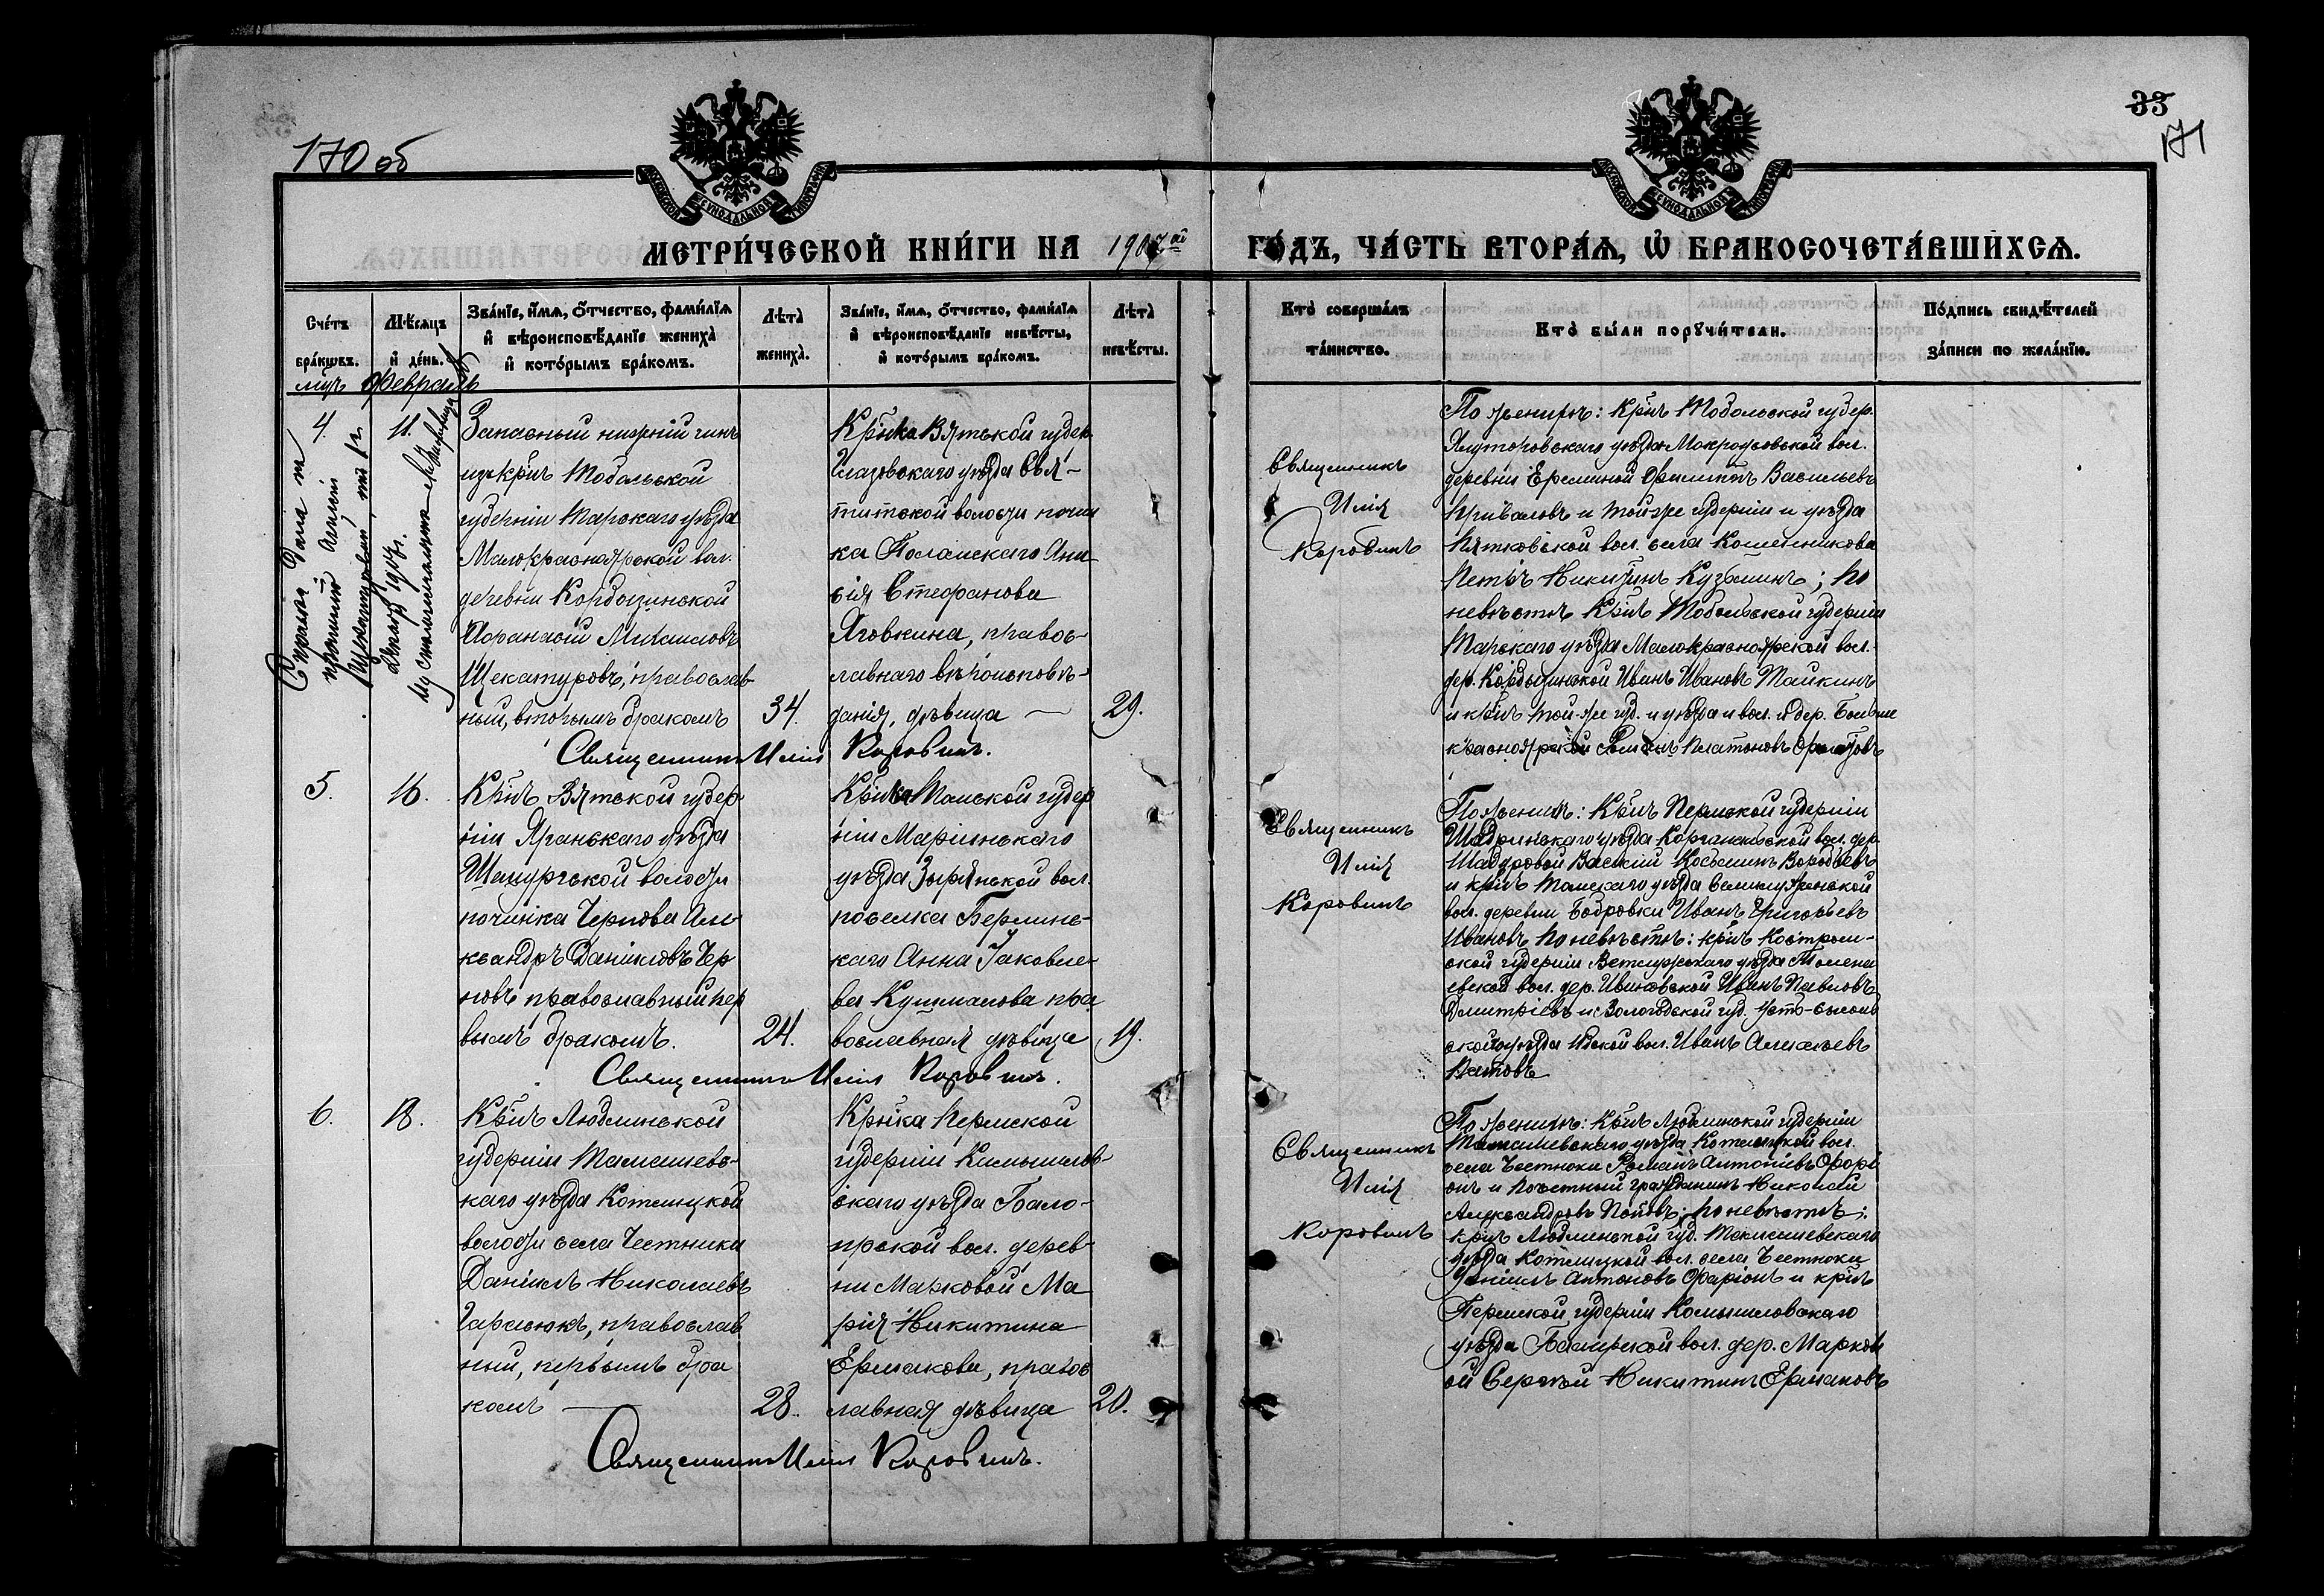 170 об
33
171
МЕТРИ́ЧЕСКОЙ КНИ́ГИ НА 1907ой ГО́ДЪ, ЧА́СТЬ ВТОРА́Ѧ, Ѡ БРАКОСОЧЕТА́ВШИХСѦ.
Сче́тъ бра́кѡвъ.
Мѣ́сѧцъ и́ де́нь.
Зва́нїе, и́мѧ, ѻ́тчество, фами́лїѧ
и́ вѣроисповѣ́данїе жениха̀
и́ кото́рымъ бра́комъ.
Лѣ́та жениха̀.
Зва́нїе, и́мѧ, ѻ́тчество, фами́лїѧ
и́ вѣроисповѣ́данїе невѣ́сты,
и́ кото́рымъ бра́комъ.
Лѣ́та невѣ́сты.
Кто̀ соверша́лъ та́инство.
Кто̀ бы́ли порꙋчи́тели.
По́дпись свидѣ́телей
за́писи по жела́нїю.
мцъ Февраль
4.
11.
Запасный нижній чинъ
из крнъ Тобольской
губерніи Тарскаго уѣзда
Малокрасноярской вол.
деревни Кордызинской
Аѳанасій Михаиловъ
Щекатуровъ, православ-
ный, вторымъ бракомъ
34.
Крнка Вятской губер.
Глазовскаго уѣзда Свя-
титской волости почин
ка Поламскаго Ани
сія Стефанова
Яговкина, правос-
лавнаго вѣроисповѣ-
данія, дѣвица
29.
Священникъ
Илія
Коровинъ
По женихѣ: крнъ Тобольской губер.
Ялуторовскаго уѣзда Мокроусовской вол.
деревни Ереминой Филиппъ Васильевъ
Приваловъ и той же губерніи и уѣзда
Пятковской вол. села Кошенникова
Петръ Никитинъ Кузьминъ; по
невѣстѣ крнъ Тобольской губерніи
Тарскаго уѣзда Малокрасноярской вол.
дер. Кордызинской Иванъ Ивановъ Тайкинъ
и крнъ той же губ. и уѣзда и вол. и дер. Больше
красноярской Платоновъ
Священникъ Илія Коровинъ.
5.
16.
Крнъ Вятской губер-
ніи Яранскаго уѣзда
волости
починка Чернова Але
ксандръ Даніиловъ Чер
новъ православный пер
вымъ бракомъ.
24.
Крнка Томской губер
ніи Маріинскаго
уѣзда Зырянской вол.
поселка Берлинс-
каго Анна Іаковле-
ва Кушманова пра
вославная дѣвица
19.
Священникъ
Илія
Коровинъ
По женихѣ: Крнъ Пермской губерніи
Шадринскаго уѣзда вол. дер.
Шадуровой Василій Косьминъ Воробьевъ
и крнъ Томскаго уѣзда
вол. деревни Бобровки Иванъ Григорьевъ
Ивановъ по невѣстѣ: крнъ Костром-
ской губерніи Ветлужскаго уѣзда
вол. дер. Ивановской Иванъ Павловъ
Дмитріевъ и Вологодской губ. Усть-сысоль
скаго уѣзда вол. Иванъ Алексѣевъ
Священникъ Илія Коровинъ.
6.
18.
Крнъ Люблинской
губерніи Томашевс-
каго уѣзда Котлицкой
волости села Честники
Даніилъ Николаевъ
Гарасюкъ, православ
ный, первымъ бра
комъ
28.
Крнка Пермской
губерніи Камышлов-
скаго уѣзда Бало-
ирской вол. дерев-
ни Марковой Ма
рія Никитина
Ермакова, правос
лавная дѣвица
20.
Священникъ
Илія
Коровинъ
По женихѣ: Крнъ Люблинской губерніи
Томашевскаго уѣзда Котлицкой вол.
села Честноки Романъ Антоніевъ Фарі
онъ и Почетный гражданинъ Николай
Александровъ Поповъ; по невѣстѣ:
крнъ Люблинской губ. Томашевскаго
уѣзда Котлицкой вол. села Честноки
Даніилъ Антоновъ Фаріонъ и крнъ
Пермской губерніи Камышловскаго
уѣзда Балаирской вол. дер. Марков
ой Сергѣй Никитинъ Ермаковъ
Священникъ Илія Коровинъ.